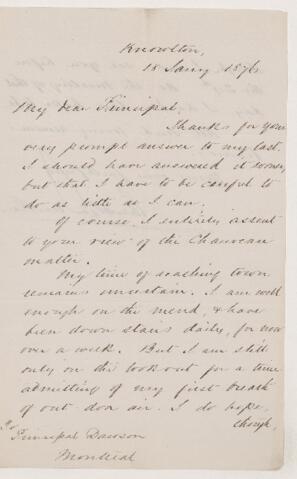 Knowlton,
18 Jany 1876.
My dear Principal,
Thanks for your
very prompt answer to my last.
I should have answered it sooner,
but that I have to be careful to
do as little as I can.
Of course I entirely assent
to your view of the Chauveau
matter.
My time of reaching town
remains uncertain. I am well
enough on the mend, & have
been down stairs daily, for now
over a week. But I am still
only on the look out for a time
admitting of my first breath
of out door air. I do hope,
though,
Principal Dawson
Montreal